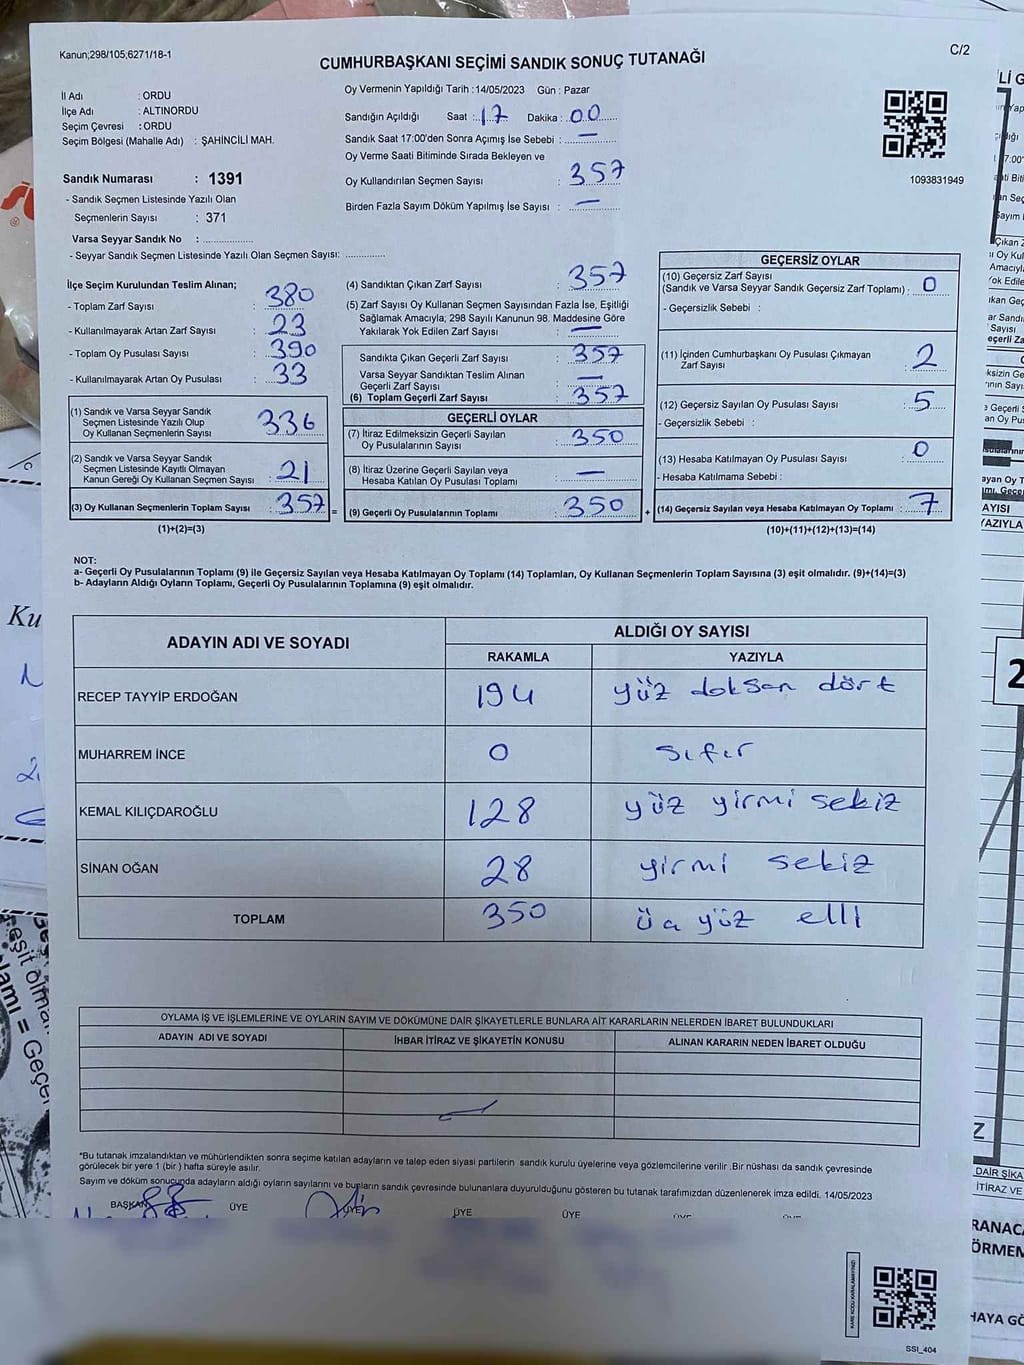 Kanun;298/105;6271/18-1
C/2
CUMHURBAŞKANI SEÇİMİ SANDIK SONUÇ TUTANAĞI
İl Adı : ORDU
İlçe Adı : ALTINORDU
Seçim Çevresi : ORDU
Seçim Bölgesi (Mahalle Adı) : ŞAHİNCİLİ MAH.
Sandık Numarası : 1391
- Sandık Seçmen Listesinde Yazılı Olan
Seçmenlerin Sayısı : 371
Varsa Seyyar Sandık No : ................
- Seyyar Sandık Seçmen Listesinde Yazılı Olan Seçmen Sayısı: .............
Oy Vermenin Yapıldığı Tarih : 14/05/2023 Gün : Pazar
Sandığın Açıldığı Saat : 17 Dakika : 00
Sandık Saat 17:00'den Sonra Açımış İse Sebebi : —
Oy Verme Saati Bitiminde Sırada Bekleyen ve
Oy Kullandırılan Seçmen Sayısı : 357
Birden Fazla Sayım Döküm Yapılmış İse Sayısı : —
1093831949
İlçe Seçim Kurulundan Teslim Alınan;
- Toplam Zarf Sayısı : 380
- Kullanılmayarak Artan Zarf Sayısı : 23
- Toplam Oy Pusulası Sayısı : 390
- Kullanılmayarak Artan Oy Pusulası : 33
(1) Sandık ve Varsa Seyyar Sandık
Seçmen Listesinde Yazılı Olup
Oy Kullanan Seçmenlerin Sayısı : 336
(2) Sandık ve Varsa Seyyar Sandık
Seçmen Listesinde Kayıtlı Olmayan
Kanun Gereği Oy Kullanan Seçmen Sayısı : 21
(3) Oy Kullanan Seçmenlerin Toplam Sayısı : 357 =
(1)+(2)=(3)
(4) Sandıktan Çıkan Zarf Sayısı : 357
(5) Zarf Sayısı Oy Kullanan Seçmen Sayısından Fazla İse, Eşitliği
Sağlamak Amacıyla; 298 Sayılı Kanunun 98. Maddesine Göre
Yakılarak Yok Edilen Zarf Sayısı : —
Sandıkta Çıkan Geçerli Zarf Sayısı : 357
Varsa Seyyar Sandıktan Teslim Alınan
Geçerli Zarf Sayısı : —
(6) Toplam Geçerli Zarf Sayısı : 357
GEÇERLİ OYLAR
(7) İtiraz Edilmeksizin Geçerli Sayılan
Oy Pusulalarının Sayısı : 350
(8) İtiraz Üzerine Geçerli Sayılan veya
Hesaba Katılan Oy Pusulası Toplamı : —
(9) Geçerli Oy Pusulalarının Toplamı : 350 +
GEÇERSİZ OYLAR
(10) Geçersiz Zarf Sayısı
(Sandık ve Varsa Seyyar Sandık Geçersiz Zarf Toplamı) : 0
- Geçersizlik Sebebi :
(11) İçinden Cumhurbaşkanı Oy Pusulası Çıkmayan
Zarf Sayısı : 2
(12) Geçersiz Sayılan Oy Pusulası Sayısı : 5
- Geçersizlik Sebebi :
(13) Hesaba Katılmayan Oy Pusulası Sayısı : 0
- Hesaba Katılmama Sebebi :
(14) Geçersiz Sayılan veya Hesaba Katılmayan Oy Toplamı : 7
(10)+(11)+(12)+(13)=(14)
NOT:
a- Geçerli Oy Pusulalarının Toplamı (9) ile Geçersiz Sayılan veya Hesaba Katılmayan Oy Toplamı (14) Toplamları, Oy Kullanan Seçmenlerin Toplam Sayısına (3) eşit olmalıdır. (9)+(14)=(3)
b- Adayların Aldığı Oyların Toplamı, Geçerli Oy Pusulalarının Toplamına (9) eşit olmalıdır.
ADAYIN ADI VE SOYADI ALDIĞI OY SAYISI
RAKAMLA YAZIYLA
RECEP TAYYİP ERDOĞAN 194 yüz doksan dört
MUHARREM İNCE 0 sıfır
KEMAL KILIÇDAROĞLU 128 yüz yirmi sekiz
SİNAN OĞAN 28 yirmi sekiz
TOPLAM 350 üç yüz elli
OYLAMA İŞ VE İŞLEMLERİNE VE OYLARIN SAYIM VE DÖKÜMÜNE DAİR ŞİKAYETLERLE BUNLARA AİT KARARLARIN NELERDEN İBARET BULUNDUKLARI
ADAYIN ADI VE SOYADI İHBAR İTİRAZ VE ŞİKAYETİN KONUSU ALINAN KARARIN NEDEN İBARET OLDUĞU
*Bu tutanak imzalandıktan ve mühürlendikten sonra seçime katılan adayların ve talep eden siyasi partilerin sandık kurulu üyelerine veya gözlemcilerine verilir .Bir nüshası da sandık çevresinde
görülecek bir yere 1 (bir ) hafta süreyle asılır.
Sayım ve döküm sonucunda adayların aldığı oyların sayılarını ve bunların sandık çevresinde bulunanlara duyurulduğunu gösteren bu tutanak tarafımızdan düzenlenerek imza edildi. 14/05/2023
BAŞKAN ÜYE ÜYE ÜYE ÜYE
KARE KODU KARALAMAYINIZ!
SSI_404